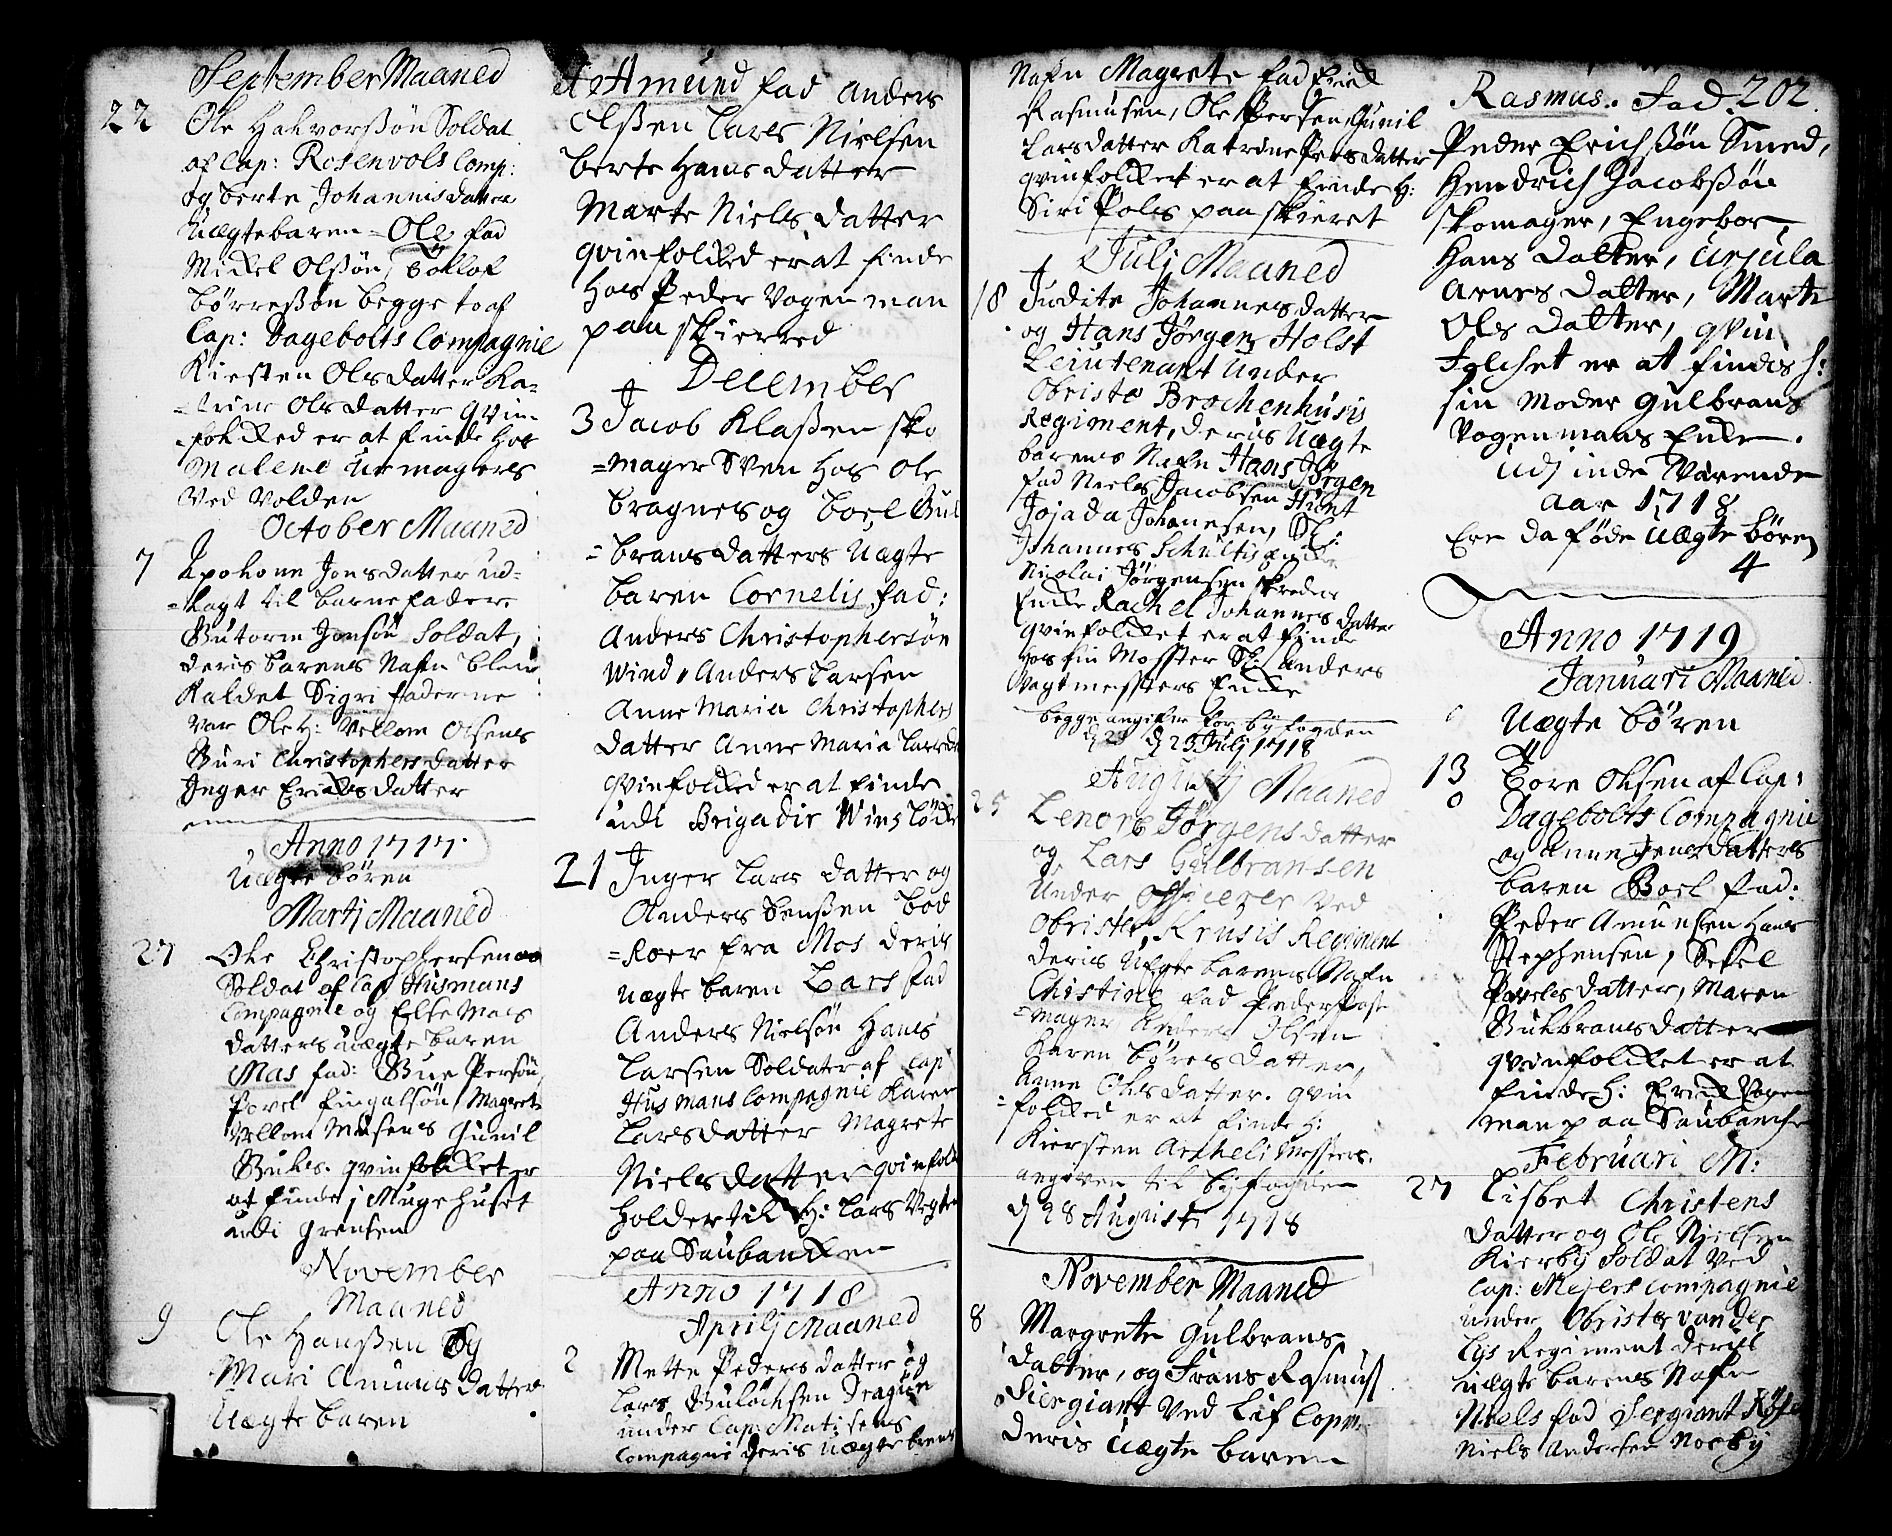 September Maaned
22 Ole Halvorsßøn Soldat
af Cap: Rosenvols Comp:
og berte Johannisdatter
Uægtebaren Ole fad
Mickel Olsßøn,
Børresßøn begge to af
Cap: Dagebolts Compagnie
Kiersten Olsdatter Ka-
=trine Olsdatter qvin-
folcked er at finde hos
Malene Urmagers
Ved Volden
October Maaned
7 Apolone Jonsdatter ud-
=lagt til barnefader
Gutorm Jonsøn Soldat,
deris barens Nafn blev
kaldet Sigri faderne
var Ole H: Vellom Olsens
Guri Christophersdatter
Inger Ericksdatter
Anno 1717.
Uægte børen
Martj Maaned
27 Ole Christophersen
Soldat af Cap Husmans
Compagnie og Else Mas
datters uægte baren
Mas fad: Gue Persøn,
Povel Fingalsøn, Magrete
Vellom Musens Gunil
Guls. qvinfolcket er
at finde j Mugehuset
udi Grensen
November
Maaned
9 Ole Hansßen Og
Mari Amunsdatter
Uægte baren
Amund fad anders
Olsßen Lars Nielsen
berte Hansdatter
Marte Niels datter
qvinfolcked er at finde
hos Peder Vogenman
paa skierred
December
3 Jacob Klaßen sko
=mager Sven hos Ole
bragnes og Boel Gul
=bransdatters Uægte
baren Cornelis fad:
Anders Christophersøn
Wind, Anders Larsen
Anne Maria Christophers
datter Anne Maria Larsda
qvinfolcked er at finde
udi Brigadir Wins løcke
21 Inger Lars datter og
Anders Bensßen bod
=Roer fra Mos deris
uægte baren Lars fad
Anders Nielsøn Hans
Larsen Soldater af Cap
Husmans Compagnie Karen
Larsdatter Magrete
Nielsdatter qvinfolck
holder til H: Lars Vegter
paa Saubancken
Anno 1718
Aprilj Maaned
2 Mette Peders datter og
Lars Gulachsen Dragun
under Cap: Matisens
Compagnie deris Uægte barens
Nafn Magrete fad Erick
Rasmusen, Ole Persen, Gunil
Larsdatter Katrine Persdatter
qvinfolcket er at finde H:
Siri Pols paa skieret
Julj Maaned
18 Judite Johannesdatter
og Hans Jørgen Holst
Leiutenant Under
Obriste Brochenhusis
Regiment, deris Uægte
barens Nafn Hans Jørgen
fad Niels Jacobsen Hient
Jojada Johansen, Sl:
Johannes Schultis
Nicolai Jørgensen skreder
Encke Rachel Johannesdatter
qvinfolcket er at finde
hos sin Moster Sl: Anders
Vagtmesters Encke
begge angifne for byfogden
d 23 Julj 1718
Augustj Maaned
25 Lenore Jørgensdatter
og Lars Gulbransen
Under officerer Ved
Obrister Krusis Regiment
deris Uægte barens Nafn
Christine fad Peder Post
=mager Anders Olsen
Karen Børresdatter,
Anne Olsdatter. qvin
=folcked er at finde H:
Kiersten Ascheli Mesters.
angiven til byfogden
d 28 Augusti 1718
November Maaned
8 Margrete Gulbrans
datter, og Frans Rasmus.
Siergiant ved Lif Comp:
deris Uægte baren
Rasmus. Fad. 202.
Peder Erichsßøn Smed,
Hendrich Jacobsßøn
skomager, Engebor
Hans datter, Ursula
Arnes datter, Marte
Ols datter, qvin
Folchet er at findes h:
sin Moder Gulbrans
Vogenmans Enke.
Udj inde Værende
aar 1718
Ere da føde Uægte børen
4
Anno 1719
Januari Maaned
Uægte børen
13 Tore Olsen af Cap:
Dagebolts Compagnie
og Anne Jensdatters
baren Boel fad:
Peder Amunsen Hans
Stephensen, Sesel
Povelsdatter, Maren
Gulbransdatter
qvinfolcket er at
finde H: Erick Vogen
man paa Saubancke
Februari M:
27 Lisbet Christens
datter og Ole Nielsen
Kierby Soldat Ved
Cap: Mejers Compagnie
under Obrister van der
Lys Regiment deris
uægte barens Nafn
Niels fad Sergiant
Niels Andersen Norby